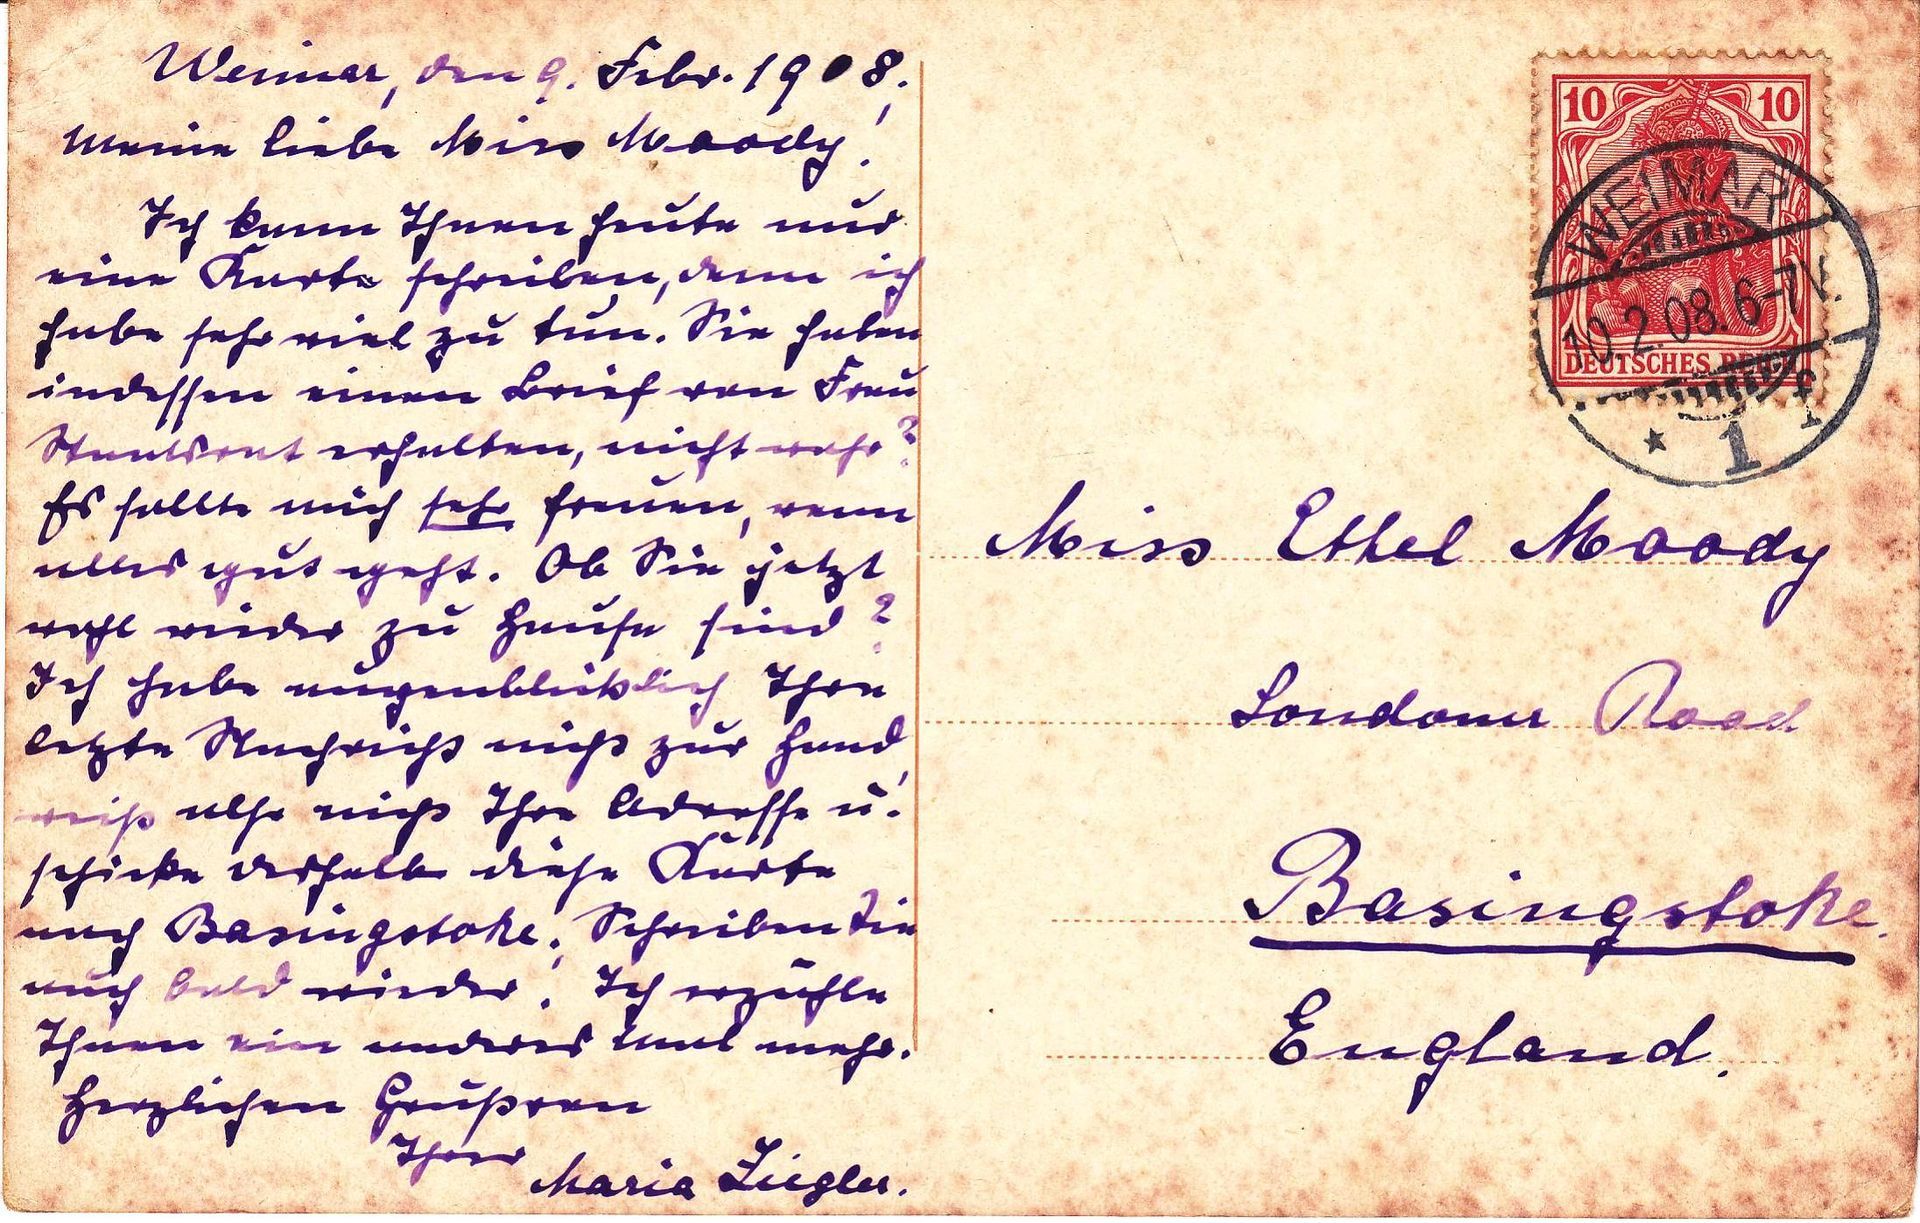 Weimar, den 9. Febr. 1908.
Meine liebe Miss Moody!
Ich kann Ihnen heute nur
eine Karte schreiben, denn ich
habe sehr viel zu tun. Sie haben
indessen einen Brief von Frau
Staatsrat erhalten, nicht wahr?
Es sollte mich sehr freuen, wenn
alles gut geht. Ob Sie jetzt
wohl wieder zu Hause sind?
Ich habe augenblicklich Ihre
letzte Nachricht nicht zur Hand,
weiß also nicht Ihre Adresse u.
schicke deshalb diese Karte
nach Basingstoke. Schreiben Sie
auch bald wieder! Ich erzähle
Ihnen ein anderes Mal mehr.
Herzlichen Gruß von
Ihrer
Maria Ziegler.
10 10
DEUTSCHES REICH
WEIMAR
10.2.08. 6-7V.
* 1 f
Miss Ethel Moody
Londoner Road
Basingstoke.
England.